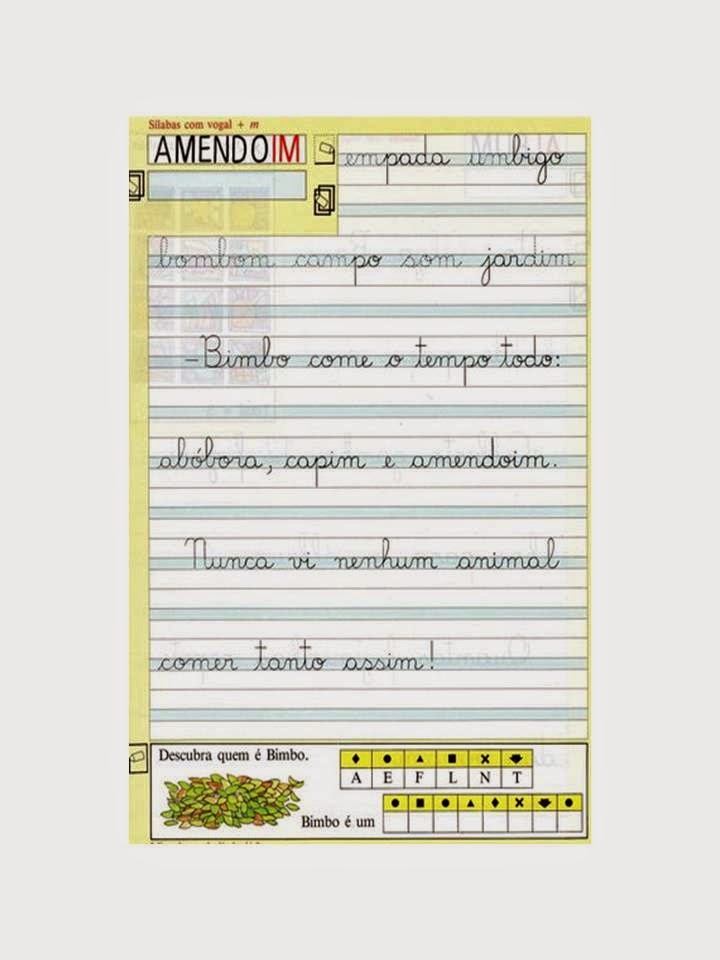 Sílabas com vogal + m
AMENDOIM
empada umbigo
bombom campo som jardim
—Bimbo come o tempo todo:
abóbora, capim e amendoim.
Nunca vi nenhum animal
comer tanto assim!
Descubra quem é Bimbo.
A E F L N T
Bimbo é um